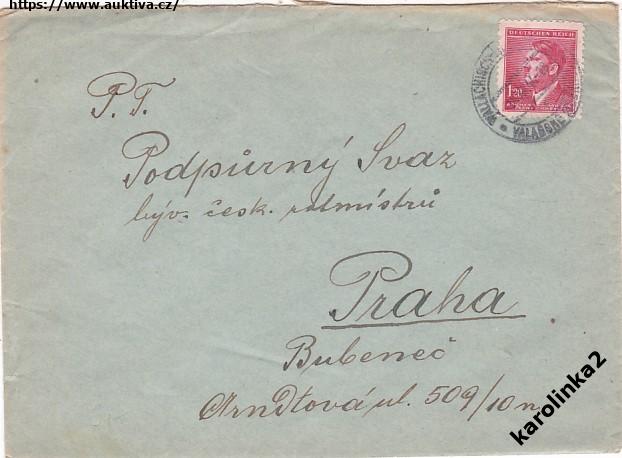 https://www.auktiva.cz/
DEUTSCHES REICH
1.20
WALLACHISCH
VALAŠSKÉ
P. T.
Podpůrný Svaz
býv. česk. rotmistrů
Praha
Bubeneč
Arndtová ul. 509/10n
karolinka2